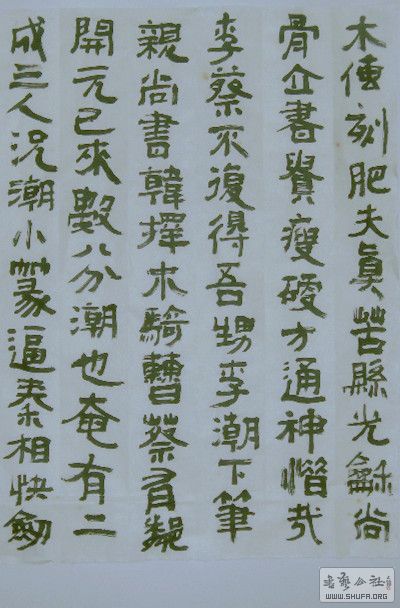 木傳刻肥失真苦縣光龢尚
骨立書貴瘦硬方通神惜哉
李蔡不復得吾甥李潮下筆
親尚書韓擇木騎曹蔡有鄰
開元已來數八分潮也奄有二
成三人況潮小篆逼秦相快劒
书艺公社
WWW.SHUFA.ORG